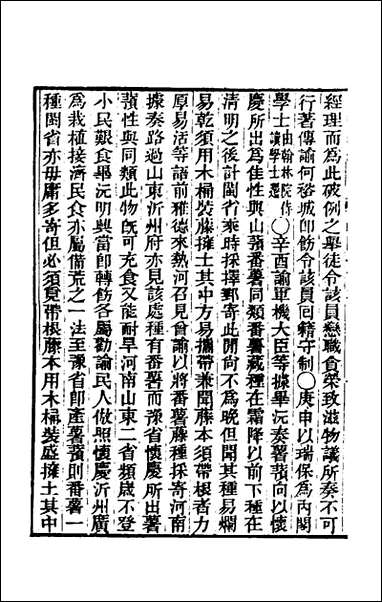 經理而為此破例之舉徒令該員戀職貪榮致滋物議所奏不可
行著傳諭何裕城即飭令該員回籍守制○庚申以瑞保為內閣
學士由翰林院侍讀學士遷○辛酉諭軍機大臣等據畢沅奏薯蕷向以懷
慶所出為佳性與山蕷番薯同類番薯藏種在霜降以前下種在
清明之後計閩省乘時採擇郵寄此閒向不為晚但聞其種易爛
易乾須用木桶裝藤擁土其中方易攜帶兼聞藤本須帶根者力
厚易活等語前雅德來熱河召見曾諭以將番薯藤種採寄河南
據奏路過山東沂州府亦見該處種有番薯而豫省懷慶所出薯
蕷性與同類此物既可充食又能耐旱河南山東二省頻歲不登
小民艱食畢沅明興當即轉飭各屬勸諭民人倣照懷慶沂州廣
為栽植接濟民食亦屬備荒之一法至豫省即產薯蕷則番薯一
種閩省亦毋庸多寄但必須覓帶根藤本用木桶裝盛擁土其中